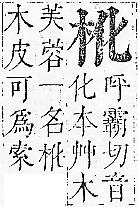 杹
呼霸切音
化本艸木
芙蓉一名杹
木皮可爲索